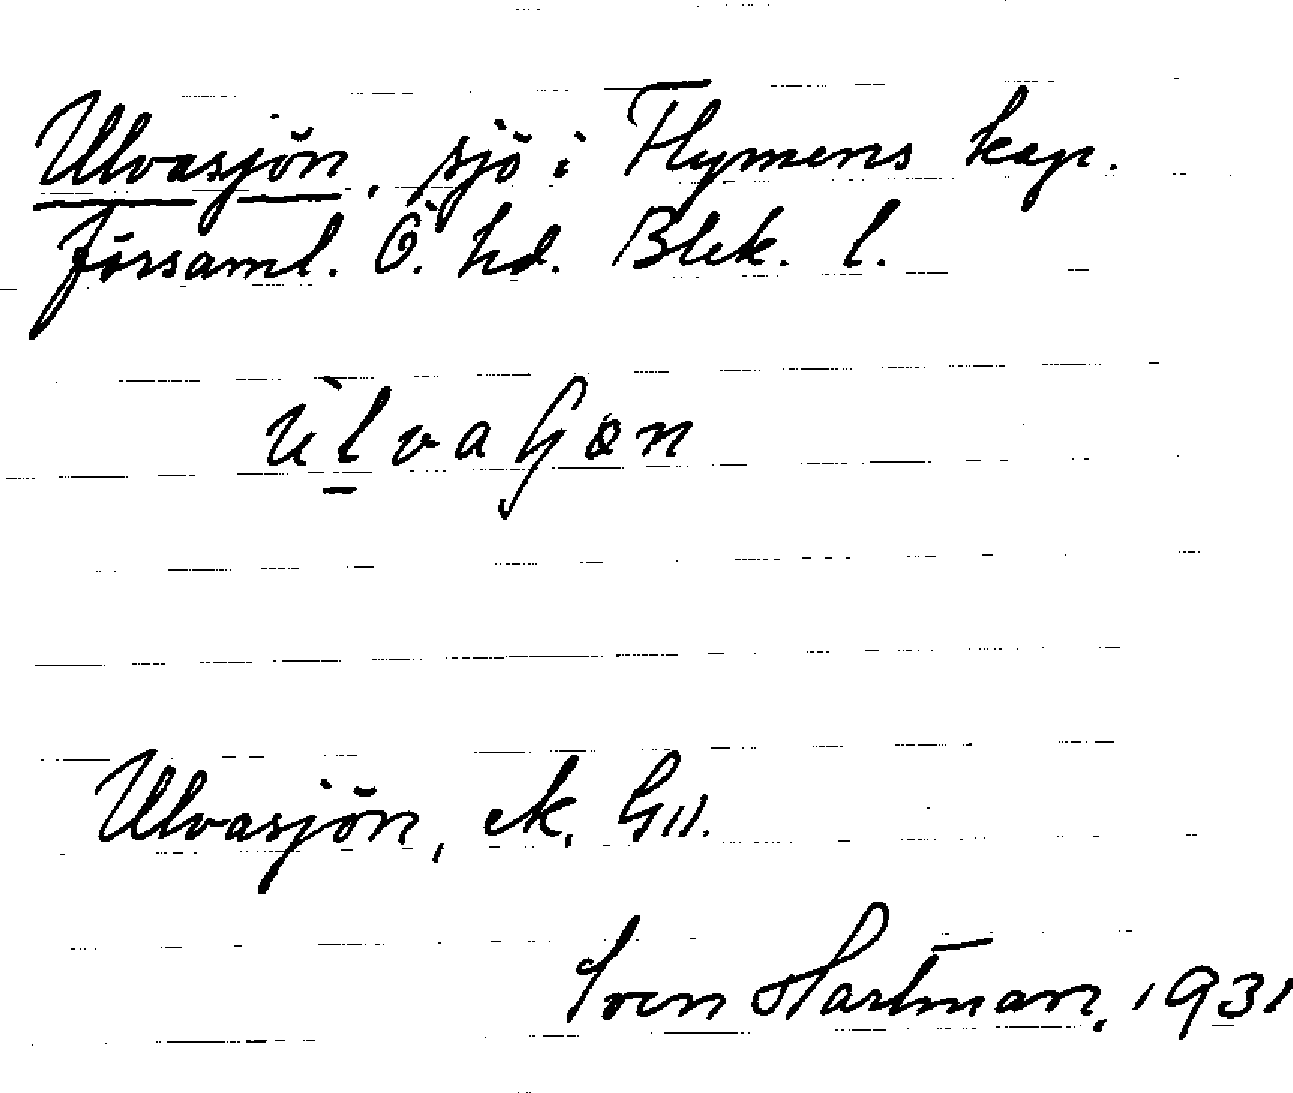 Ulvasjön, sjö i Flymens kap.
församl. Ö. hd. Blek. l.
Ulvasjön, ek. G11.
Sven Hartman, 1931